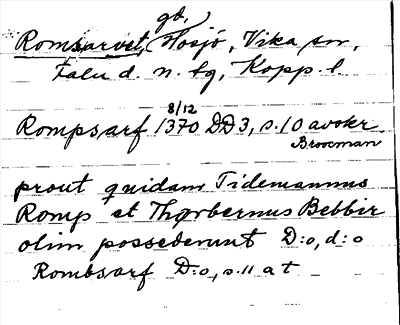 gd,
Romsarvet, Hosjö, Vika sn,
Falu d. n. tg, Kopp. l
8/12
Rompsarf 1370 DD 3, s. 10 avskr
Broocman
prout quidam Tidemannus
Romp et Thorbernus Bebbir
olim possederunt D:o, d:o
Rombsarf D:o, s. 11 a t